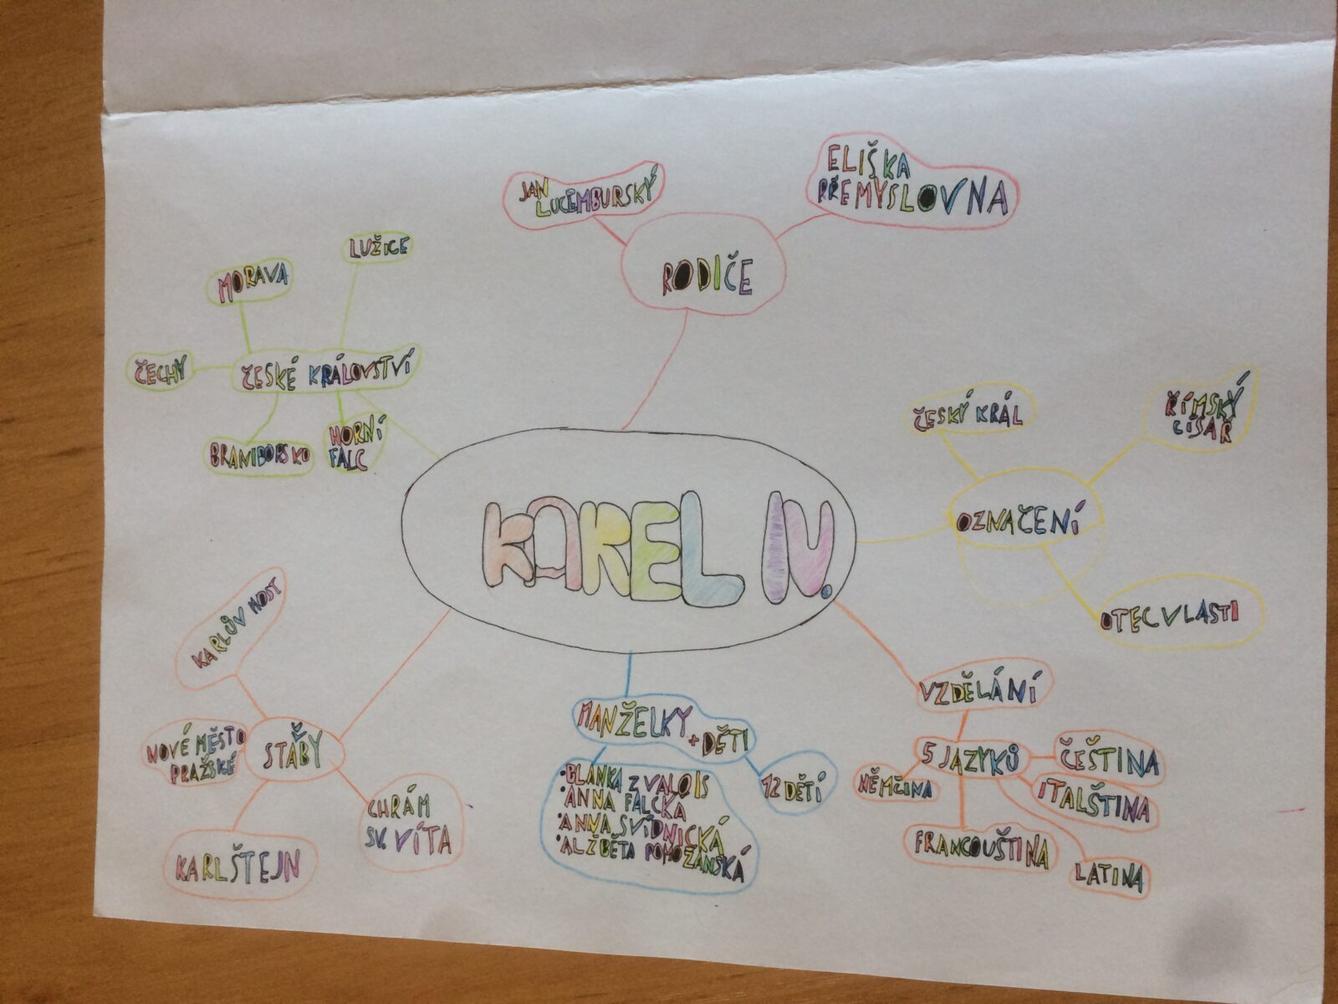 JAN
LUCEMBURSKÝ
ELIŠKA
PŘEMYSLOVNA
RODIČE
LUŽICE
MORAVA
ČECHY
ČESKÉ KRÁLOVSTVÍ
BRANIBORSKO
HORNÍ
FALC
ČESKÝ KRÁL
ŘÍMSKÝ
CÍSAŘ
OZNAČENÍ
OTEC VLASTI
KAREL IV.
KARLŮV MOST
NOVÉ MĚSTO
PRAŽSKÉ
STABY
KARLŠTEJN
CHRÁM
SV. VÍTA
MANŽELKY
+ DĚTI
•BLANKA Z VALOIS
•ANNA FALCKA
•ANNA SVÍDNICKÁ
•ALŽBĚTA POMOŽANSKÁ
12 DĚTÍ
VZDĚLÁNÍ
5 JAZYKŮ
ČEŠTINA
NĚMČINA
ITALŠTINA
FRANCOUŠTINA
LATINA